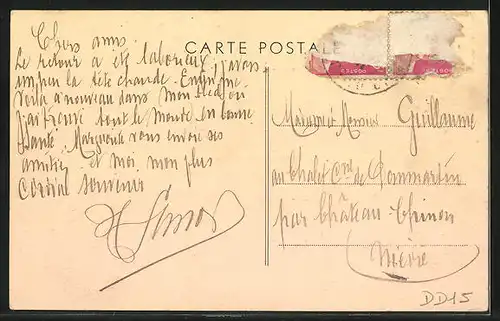 CARTE POSTALE
Chers amis.
Le retour a été laborieux j'avais
un peu la tête chaude. Enfin me
voila a nouveau dans mon
j'ai trouvé tout le monde en bonne
Santé. Marguerite vous envoie ses
amitiés et moi mon plus
Cordial souvenir
Madame et Monsieur Guillaume
au Chalet Cne de Dommartin
par Château Chinon
Nièvre
POSTES
POSTES
DD15